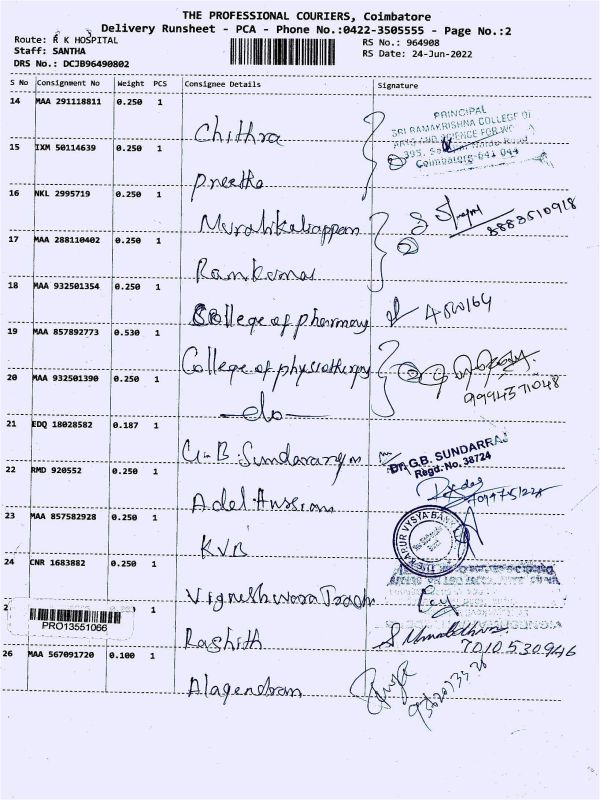 THE PROFESSIONAL COURIERS, Coimbatore
Delivery Runsheet - PCA - Phone No.:0422-3505555 - Page No.:2
Route: R K HOSPITAL
RS No.: 964908
Staff: SANTHA
RS Date: 24-Jun-2022
DRS No.: DCJB96490802
S No Consignment No Weight PCS Consignee Details Signature
14 MAA 291118811 0.250 1 Chithra
PRINCIPAL
SRI RAMAKRISHNA COLLEGE OF
ARTS AND SCIENCE FOR
395,
Coimbatore-641 044
15 IXM 50114639 0.250 1 Preetha
16 NKL 2995719 0.250 1 Muralikaliappan
8883510918
17 MAA 288110402 0.250 1 Ramkumar
18 MAA 932501354 0.250 1 College of pharmacy
19 MAA 857892773 0.530 1 College of physiotherapy
9994571048
20 MAA 932501390 0.250 1 -do-
21 EDQ 18028582 0.187 1 G.B. Sundararajan
Dr. G.B. SUNDARRAJ
Regd. No. 38724
22 RMD 920552 0.250 1 Adel Hussian
23 MAA 857582928 0.250 1 KVB
THE KARUR VYSYA BANK
24 CNR 1683882 0.250 1 Vigneshwara Track
1 Rashith
PRO13551066
7010530946
26 MAA 567091720 0.100 1 Alagendran